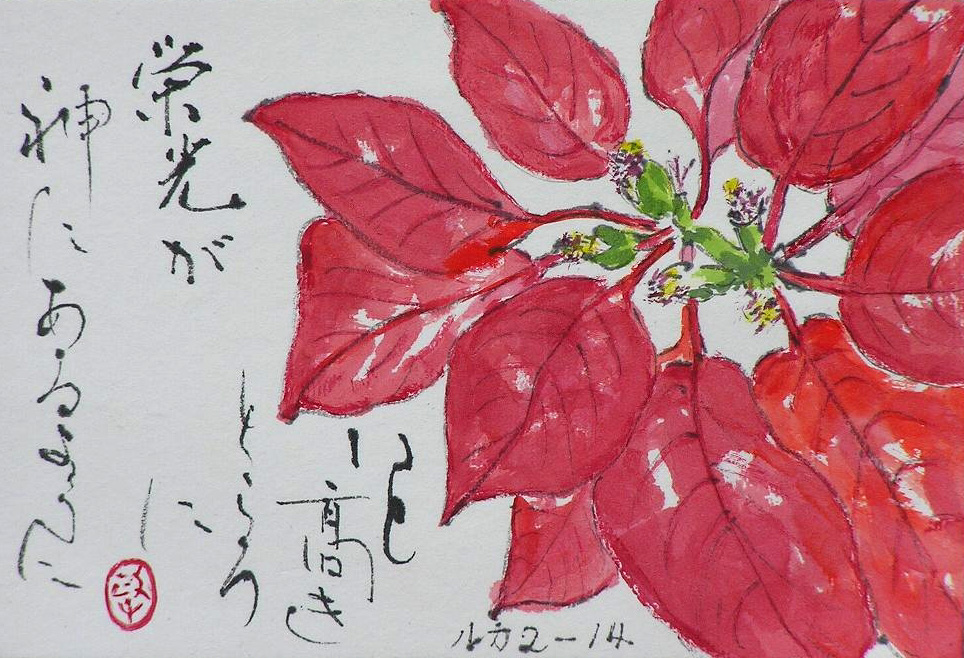 いと
高き
ところ
に
栄光が
神にあるように
ルカ2-14